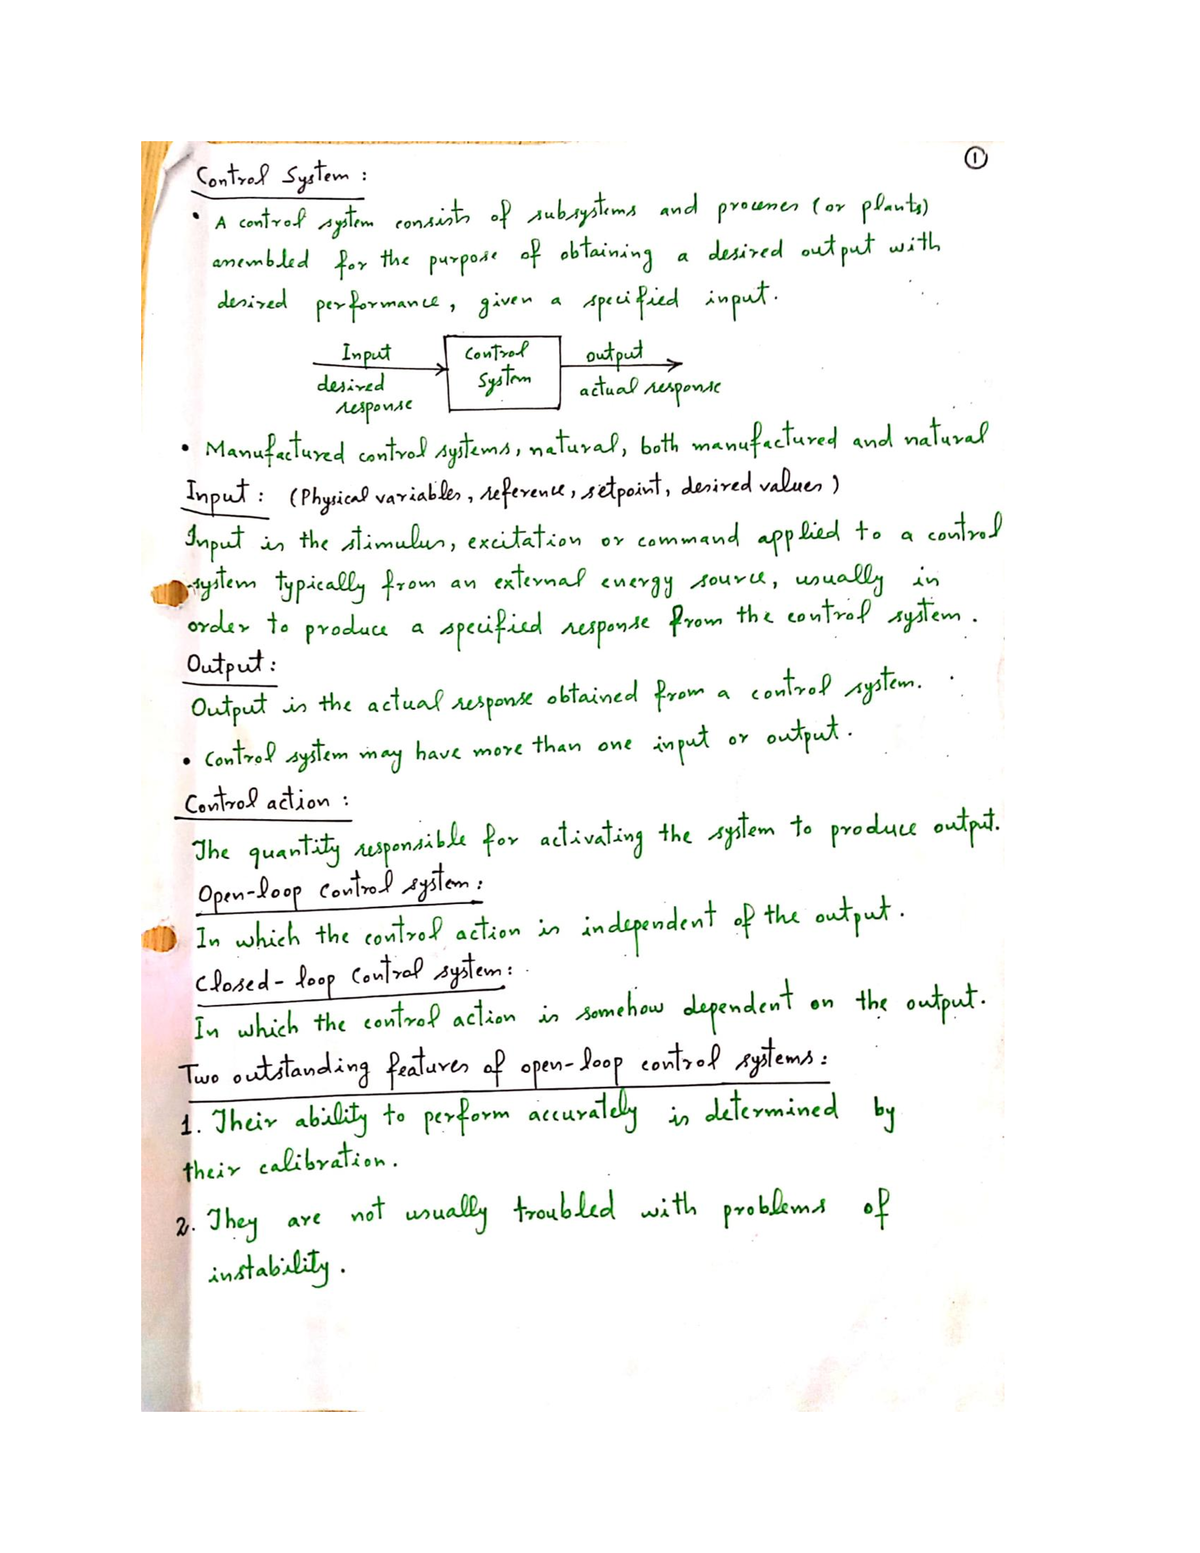 ①
Control System :
• A control system consists of subsystems and processes (or plants)
assembled for the purpose of obtaining a desired output with
desired performance, given a specified input.
Input
desired
response
Control
System
output
actual response
• Manufactured control systems, natural, both manufactured and natural
Input : (Physical variables, reference, setpoint, desired values)
Input is the stimulus, excitation or command applied to a control
system typically from an external energy source, usually in
order to produce a specified response from the control system.
Output :
Output is the actual response obtained from a control system.
• Control system may have more than one input or output.
Control action :
The quantity responsible for activating the system to produce output.
Open-loop control system :
In which the control action is independent of the output.
Closed-loop control system :
In which the control action is somehow dependent on the output.
Two outstanding features of open-loop control systems :
1. Their ability to perform accurately is determined by
their calibration.
2. They are not usually troubled with problems of
instability.